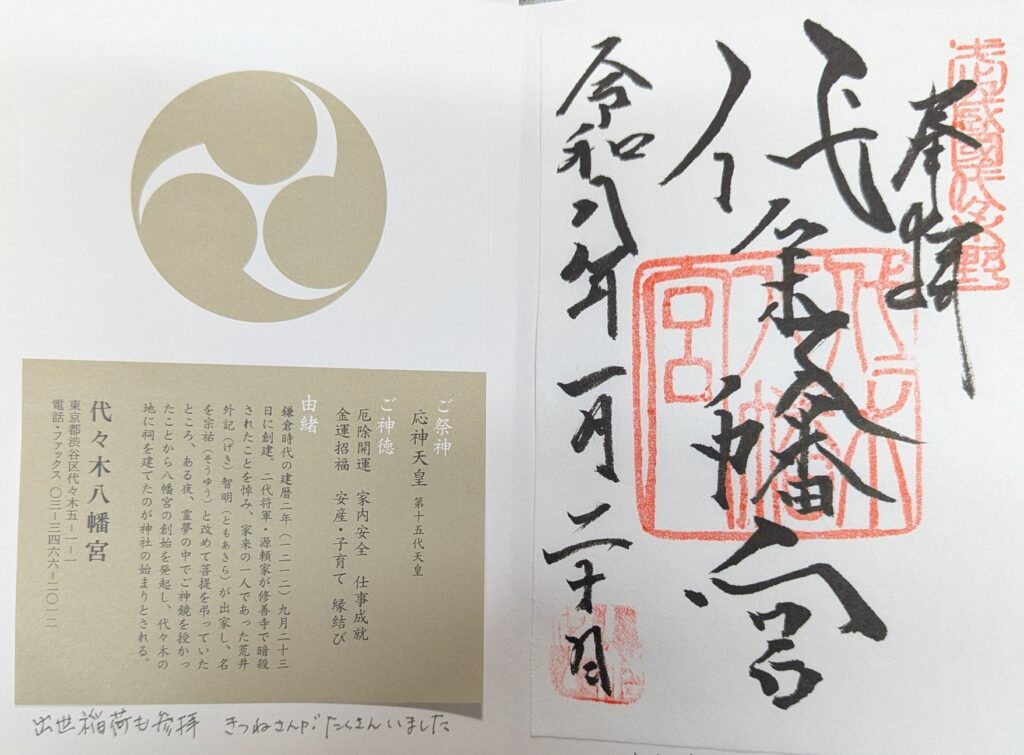 奉拝
代々木八幡宮
令和八年 一月 二十日
代々木八幡宮
ご祭神
応神天皇 第十五代天皇
ご神徳
厄除開運 家内安全 仕事成就
金運招福 安産・子育て 縁結び
由緒
鎌倉時代の建暦二年（一二一二）九月二十三
日に創建。二代将軍・源頼家が修善寺で暗殺
されたことを悼み、家来の一人であった荒井
外記（げき）智明（ともあきら）が出家し、名
を宗祐（そうゆう）と改めて菩提を弔っていた
ところ、ある夜、霊夢の中でご神鏡を授かっ
たことから八幡宮の創始を発起し、代々木の
地に祠を建てたのが神社の始まりとされる。
代々木八幡宮
東京都渋谷区代々木五-一-一
電話・ファックス 〇三-三四六六-二〇一二
出世稲荷も参拝 きつねさんが たくさんいました